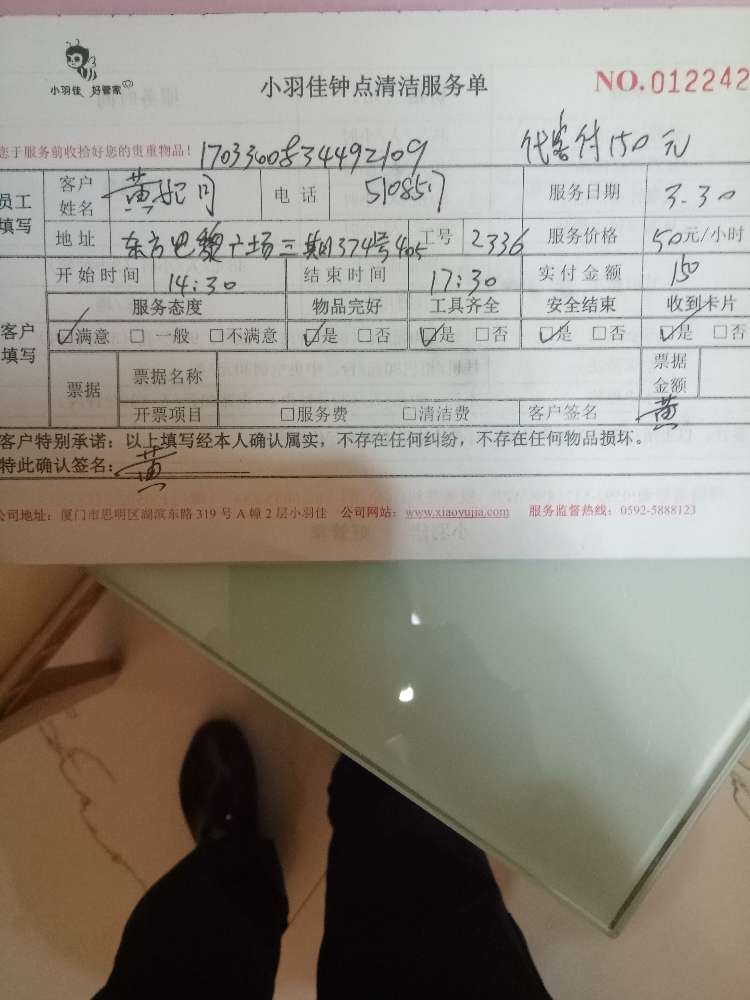 小羽佳 好管家
小羽佳钟点清洁服务单 NO.012242
您于服务前收拾好您的贵重物品! 1703300834492109 代客付150元
员工填写 客户姓名 黄 司 电话 510857 服务日期 3.30
地址 东方巴黎广场三期374号405 工号 2336 服务价格 50元/小时
客户填写 开始时间 14:30 结束时间 17:30 实付金额 150
服务态度 物品完好 工具齐全 安全结束 收到卡片
☑满意 □一般 □不满意 ☑是 □否 ☑是 □否 ☑是 □否 ☑是 □否
票据 票据名称 票据金额
开票项目 □服务费 □清洁费 客户签名 黄
客户特别承诺:以上填写经本人确认属实,不存在任何纠纷,不存在任何物品损坏。
特此确认签名:黄
公司地址:厦门市思明区湖滨东路 319 号 A 幢 2 层小羽佳 公司网站:www.xiaoyujia.com 服务监督热线:0592-5888123